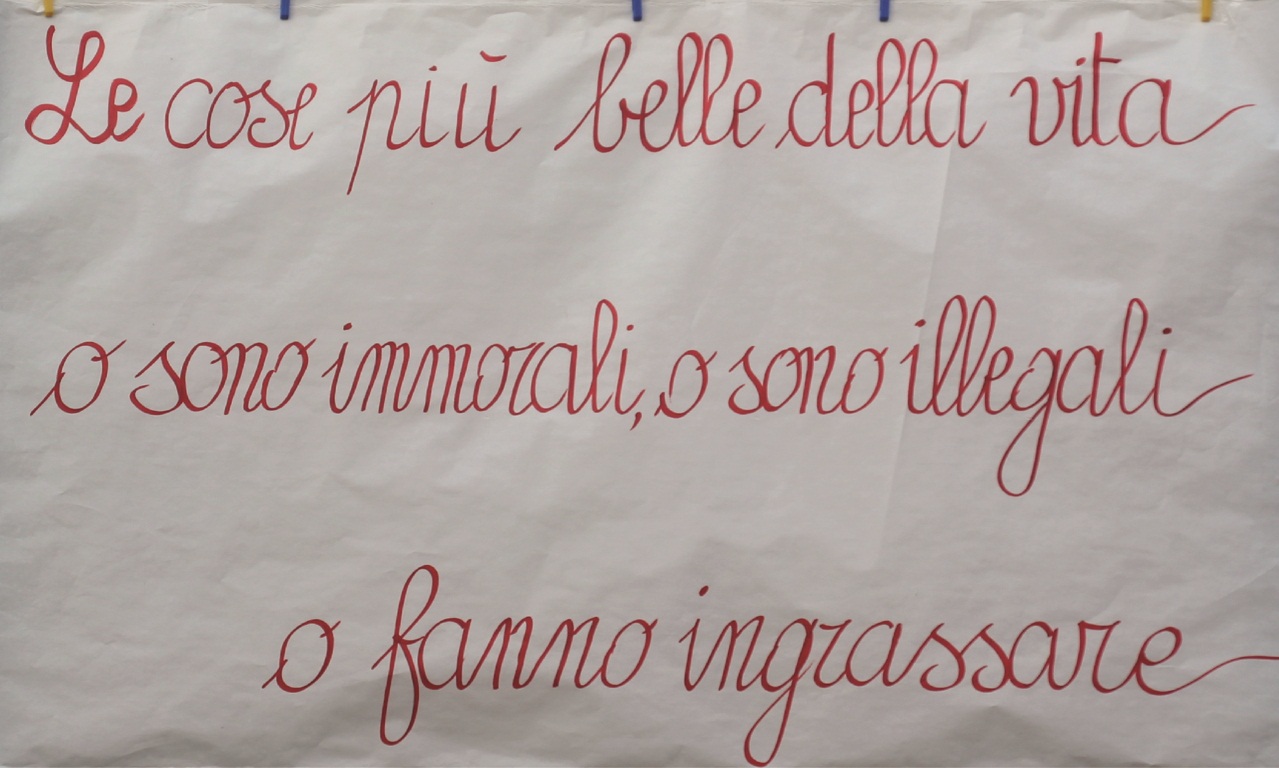 Le cose più belle della vita
o sono immorali, o sono illegali
o fanno ingrassare